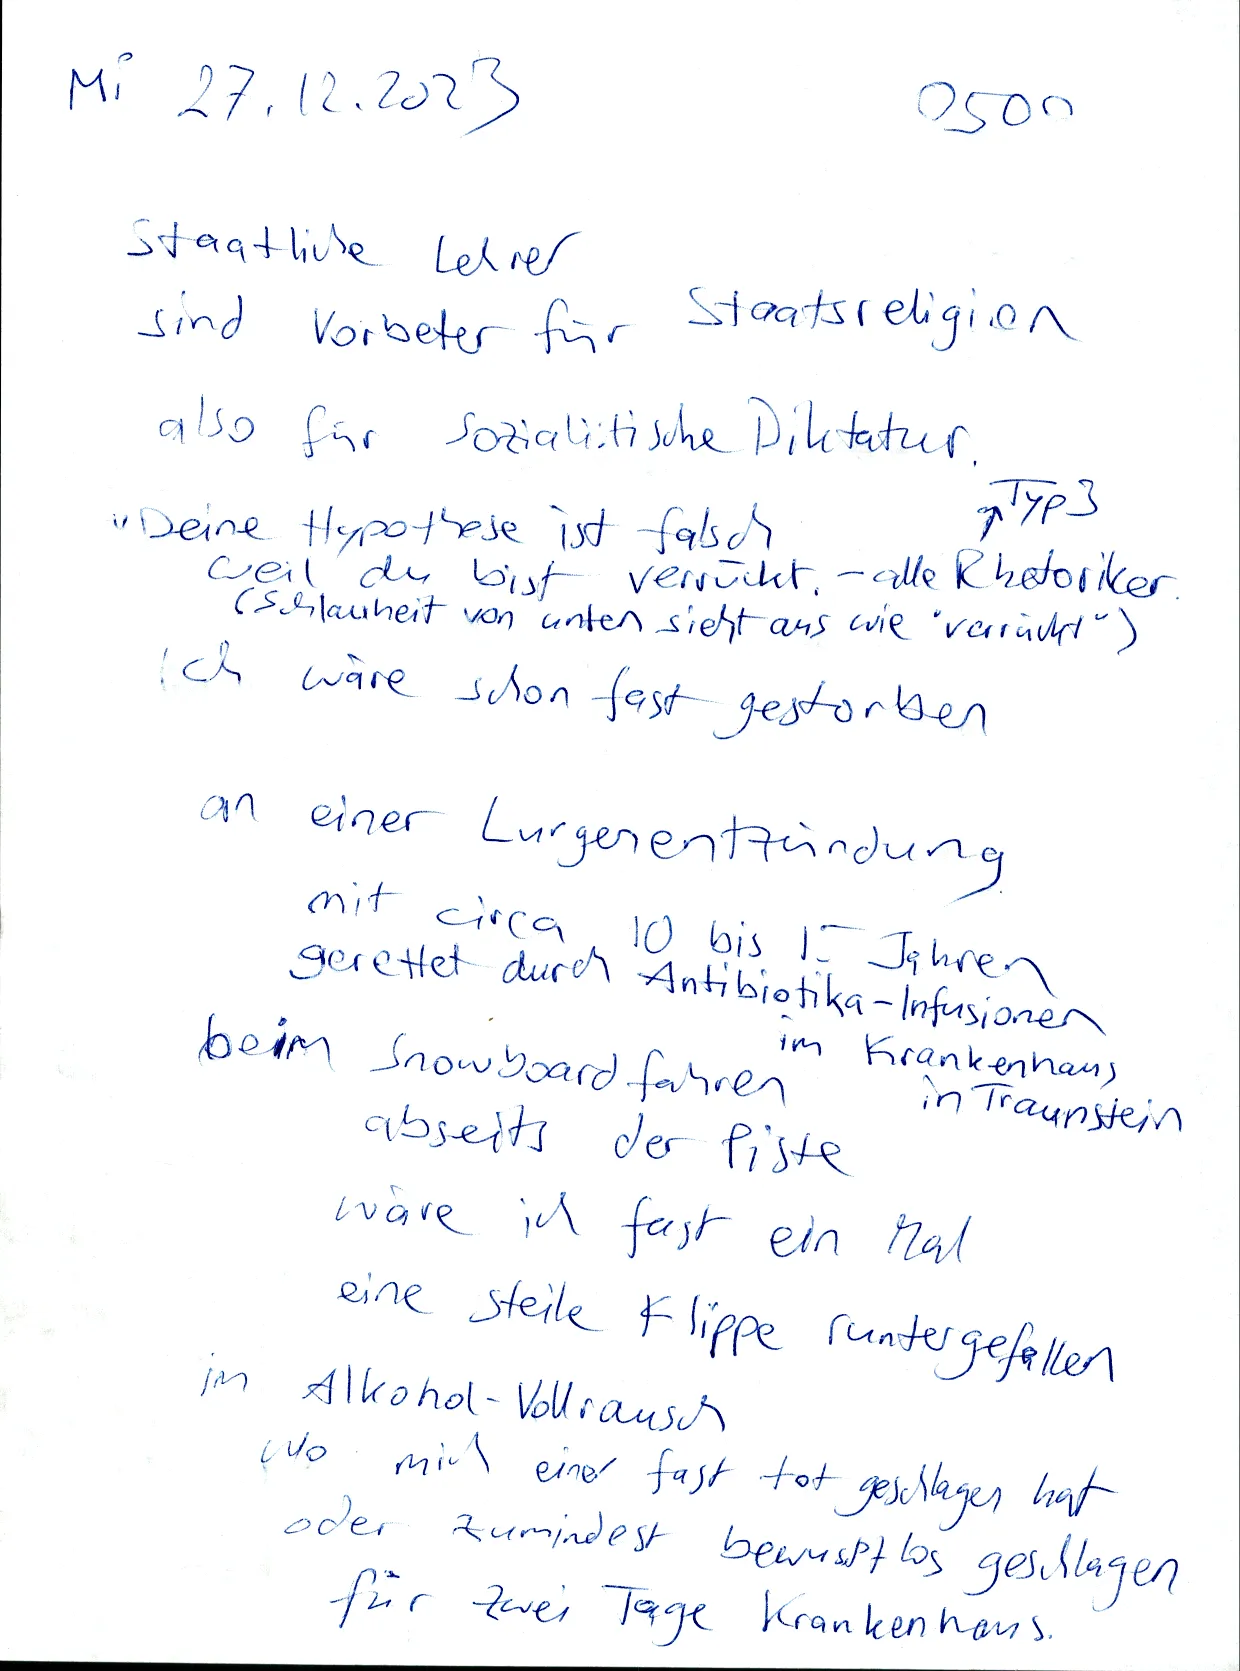 Mi 27.12.2023 0500
Staatliche Lehrer
sind Vorbeter für Staatsreligion
also für sozialistische Diktatur.
↗Typ3
"Deine Hypothese ist falsch
weil du bist verrückt. - alle Rhetoriker.
(Schlauheit von unten sieht aus wie "verrückt")
Ich wäre schon fast gestorben
an einer Lungenentzündung
mit circa 10 bis 15 Jahren
gerettet durch Antibiotika-Infusionen
im Krankenhaus
in Traunstein
beim Snowboardfahren
abseits der Piste
wäre ich fast ein Mal
eine steile Klippe runtergefallen
im Alkohol-Vollrausch
wo mich einer fast tot geschlagen hat
oder zumindest bewusstlos geschlagen
für zwei Tage Krankenhaus.